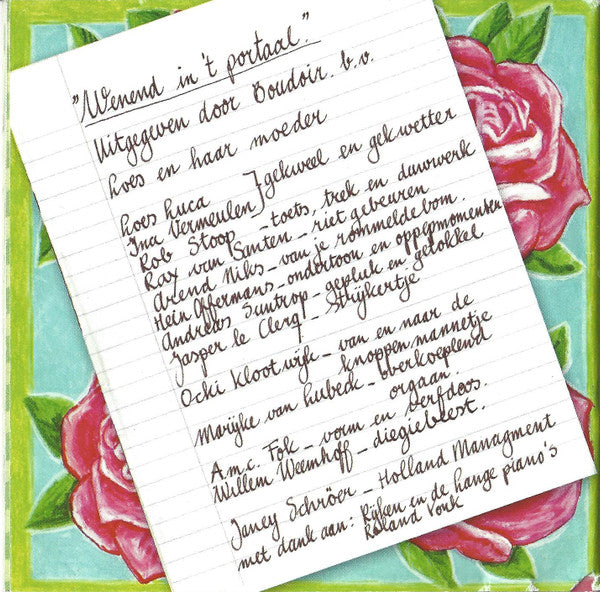 "Wenend in 't portaal."
Uitgegeven door Boudoir. b.v.
Loes en haar moeder
Loes Luca } gekweel en gekwetter
Ina Vermeulen
Rob Stoop _ toets, trek en duwwerk
Ray van Santen _ riet gebeuren
Arend Niks _ van je rommeldebom.
Hein Offermans _ ondertoon en oppepmomenten
Andreas Suntrop _ gepluk en getokkel
Jasper le Clerq _ Strijkertje
Ocki Klootwijk _ van en naar de
knoppenmannetje
Marijke van Lubeck _ overkoepelend
orgaan.
A.m.c. Fok _ vorm en verfdoos.
Willem Weemhoff _ diegiebeest.
Janey Schröer _ Holland Managment
met dank aan: Rijken en de Lange piano's
Roland Vonk